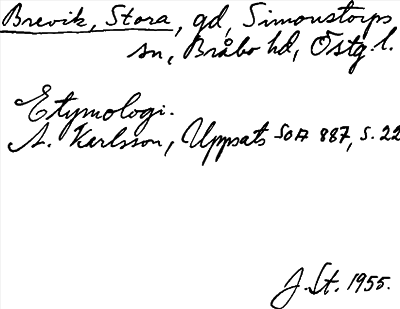 Brevik, Stora, gd, Simonstorps
sn, Bråbo hd, Östg. l.
Etymologi.
A. Karlsson, Uppsats SOA 887, s. 22
J. St. 1955.